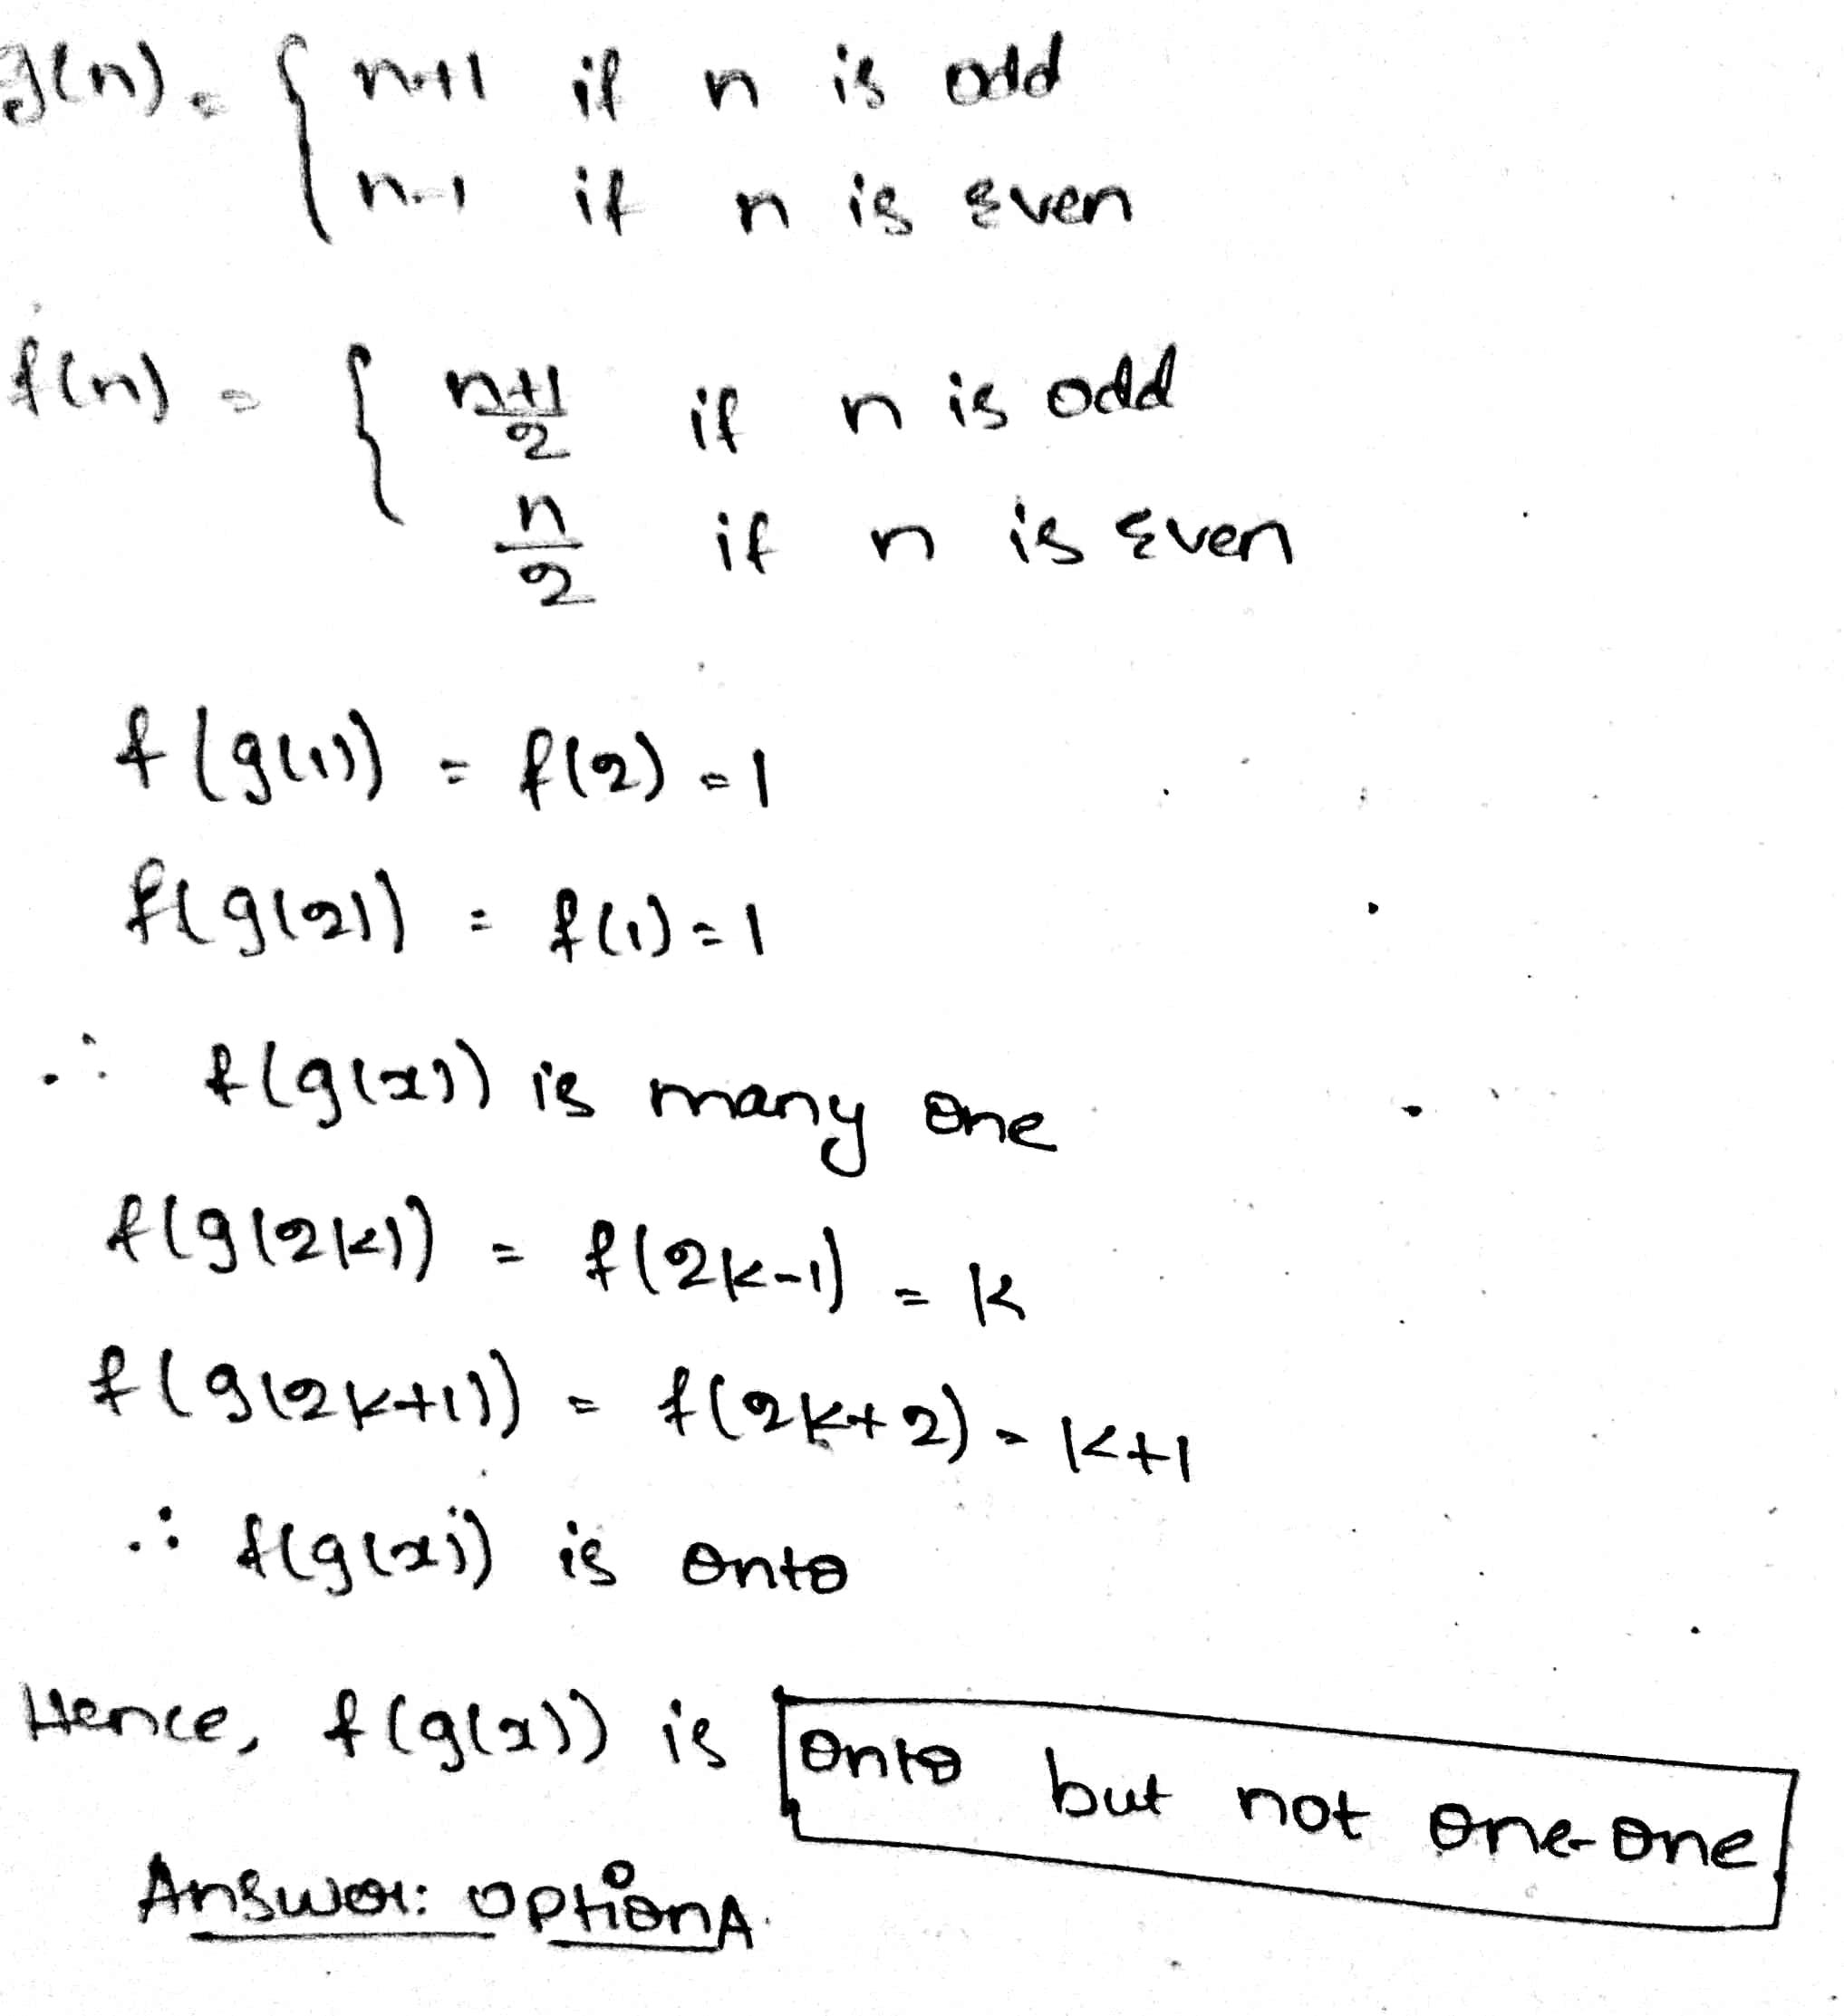 g(n) = { n+1 if n is odd
n-1 if n is even
f(n) = { n+1/2 if n is odd
n/2 if n is even
f(g(1)) = f(2) = 1
f(g(2)) = f(1) = 1
∴ f(g(x)) is many one
f(g(2k)) = f(2k-1) = k
f(g(2k+1)) = f(2k+2) = k+1
∴ f(g(x)) is onto
Hence, f(g(x)) is onto but not one-one
Answer: option A.